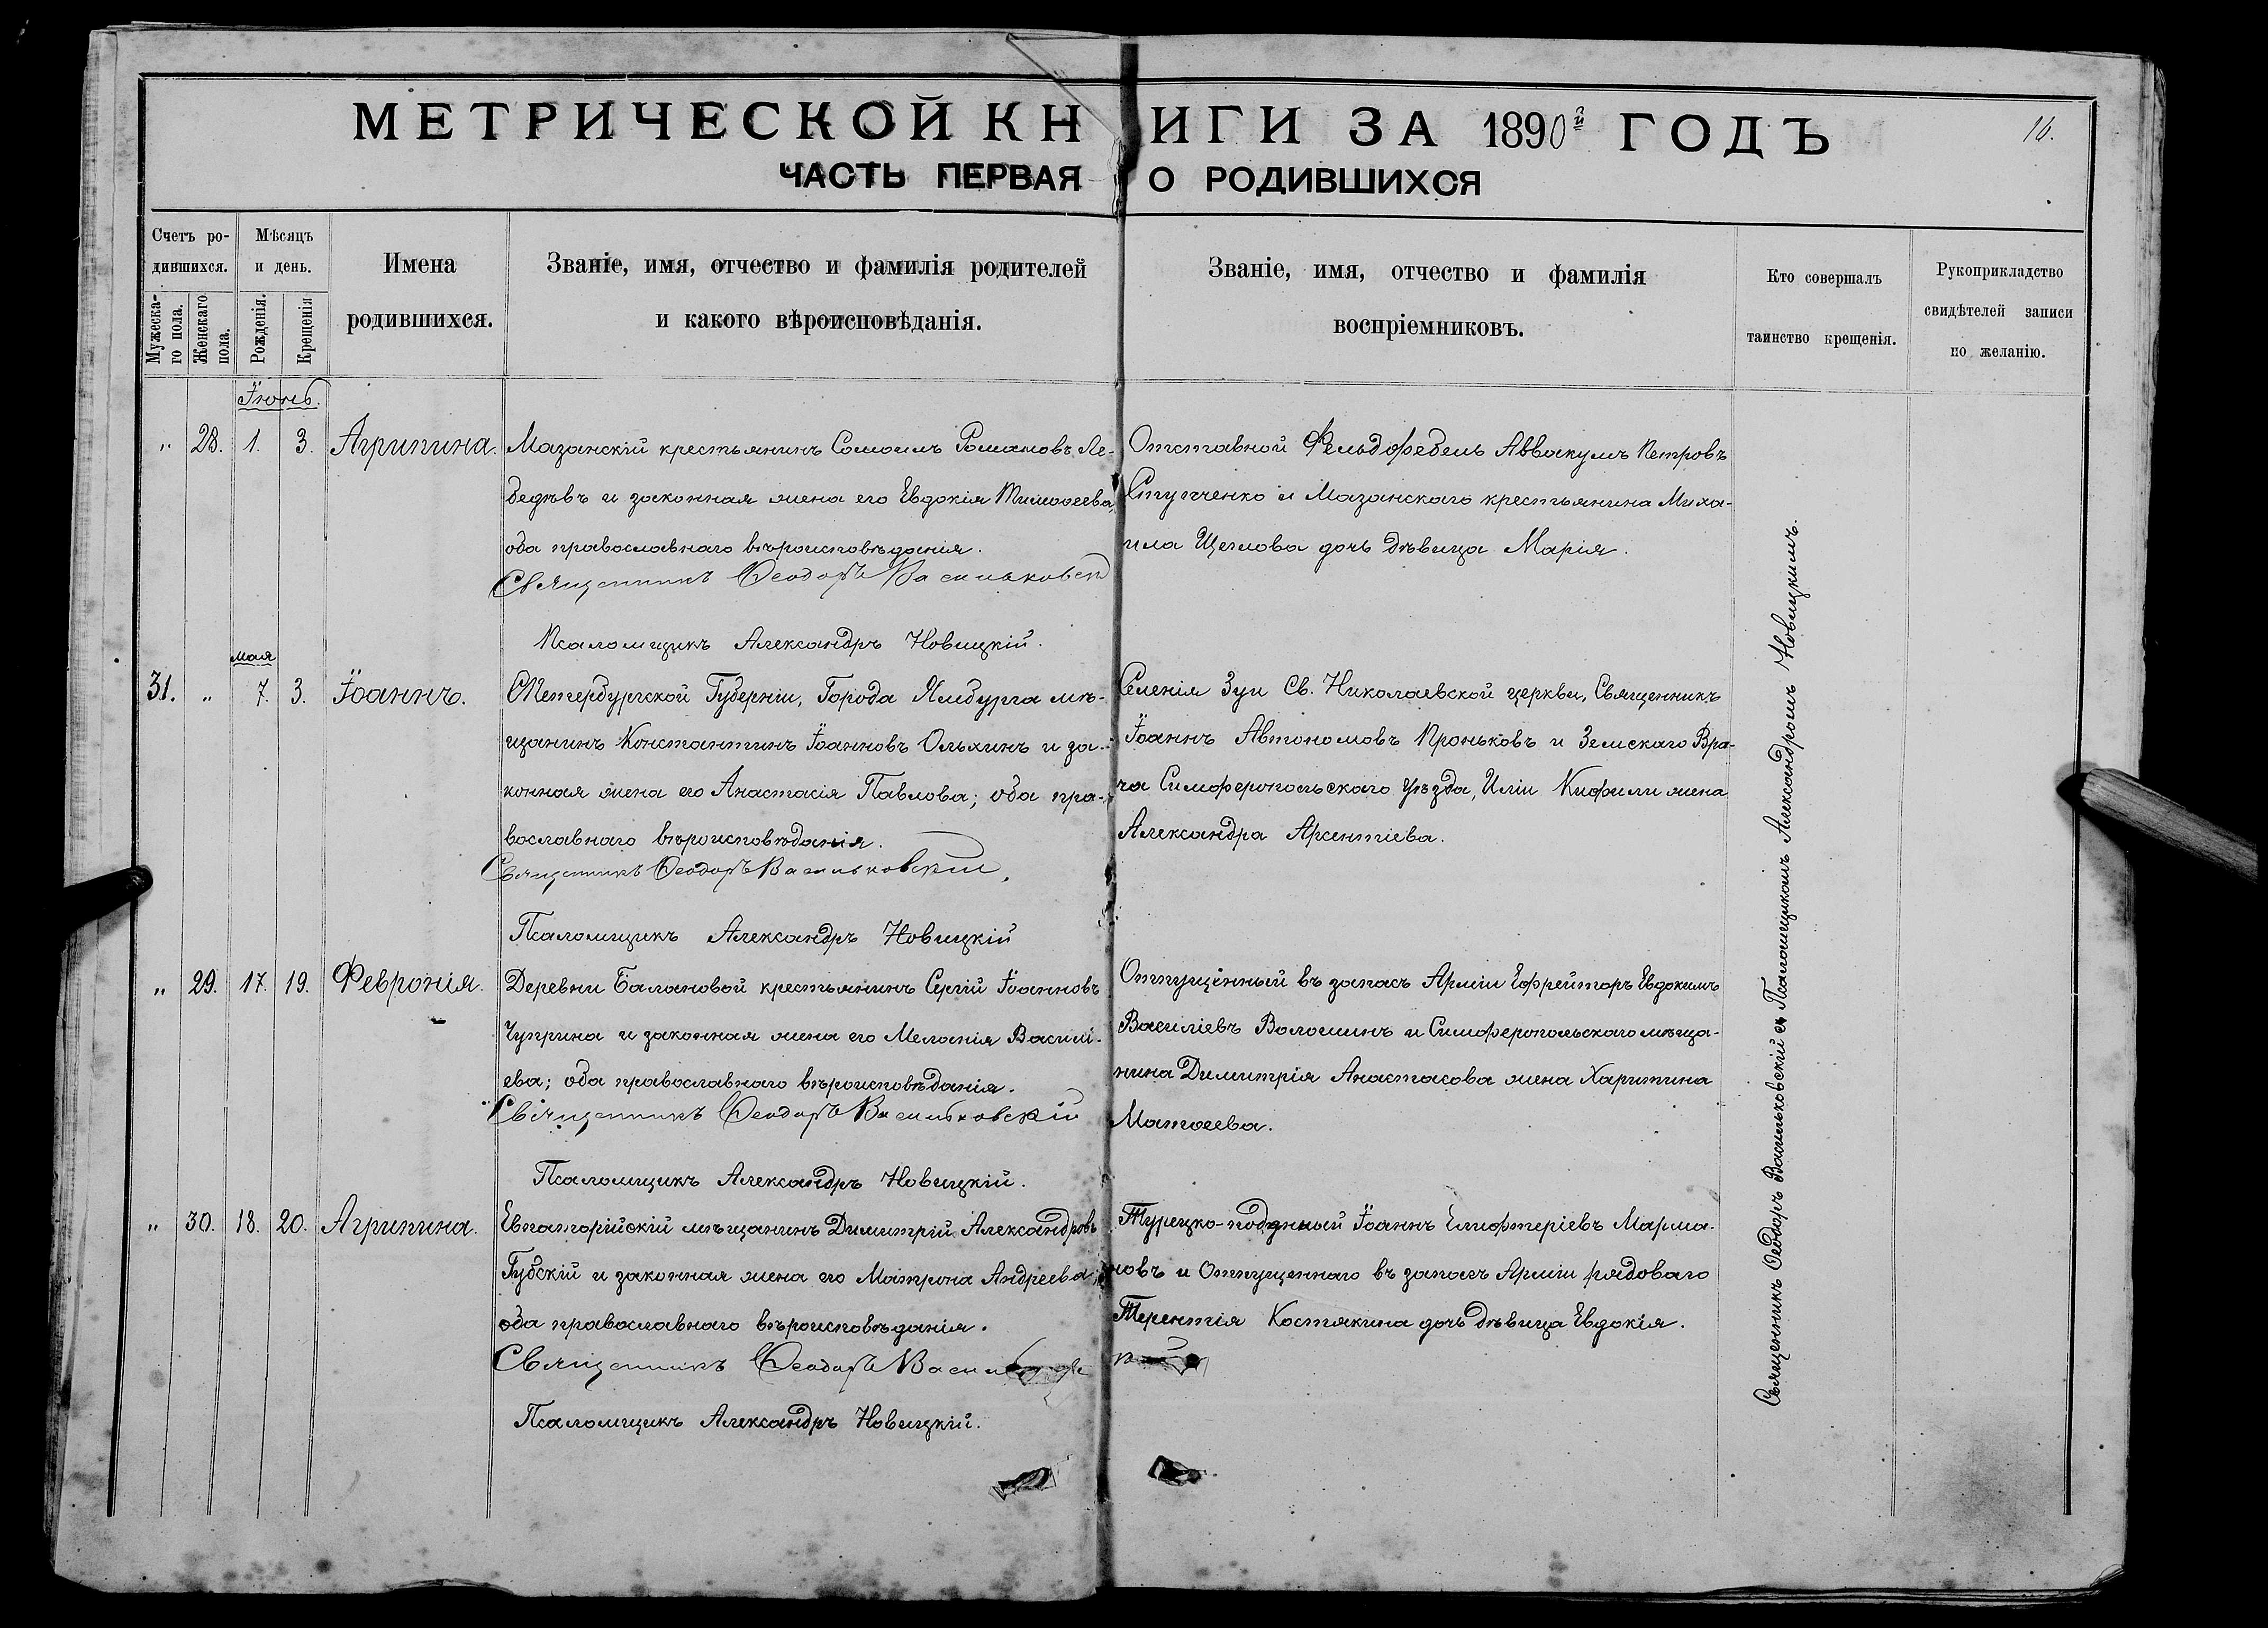 МЕТРИЧЕСКОЙ КНИГИ ЗА 1890й ГОДЪ
16.
ЧАСТЬ ПЕРВАЯ О РОДИВШИХСЯ
Счетъ ро-
дившихся.
Мужеска-
го пола.
Женскаго
пола.
Мѣсяцъ
и день.
Рожденія.
Крещенія
Имена
родившихся.
Званіе, имя, отчество и фамилія родителей
и какого вѣроисповѣданія.
Званіе, имя, отчество и фамилія
воспріемниковъ.
Кто совершалъ
таинство крещенія.
Рукоприкладство
свидѣтелей записи
по желанію.
Іюнь.
" 28. 1. 3. Агрипина.
Мазанскій крестьянинъ Самоилъ Романовъ Ле-
бедѣвъ и законная жена его Евдокія Тимоѳеева,
оба православнаго вѣроисповѣданія.
Священникъ Ѳеодоръ Васильковскій
Псаломщикъ Александръ Новицкій.
Отставной Фельдфебель Аввакумъ Петровъ
Ступченко и Мазанскаго крестьянина Миха-
ила Щеглова дочь дѣвица Марія.
мая
31. " 7. 3. Іоаннъ.
СПетербургской Губерніи, Города Ямбурга мѣ-
щанинъ Константинъ Іоанновъ Ольхинъ и за-
конная жена его Анастасія Павлова; оба пра-
вославнаго вѣроисповѣданія.
Священникъ Ѳеодоръ Васильковскій.
Псаломщикъ Александръ Новицкій
Селенія Зуи Св. Николаевской церкви, Священникъ
Іоаннъ Автономовъ Проньковъ и Земскаго Вра-
ча Симферопольскаго уѣзда, Иліи Кифили жена
Александра Арсентіева.
" 29. 17. 19. Февронія.
Деревни Балановой крестьянинъ Сергій Іоанновъ
Чуприна и законная жена его Меланія Василі-
ева; оба православнаго вѣроисповѣданія.
Священникъ Ѳеодоръ Васильковскій
Псаломщикъ Александръ Новицкій.
Отпущенный въ запасъ Арміи Ефрейторъ Евдокимъ
Василіевъ Волошинъ и Симферопольскаго мѣща-
нина Димитрія Анастасова жена Харитина
Матѳеева.
" 30. 18. 20. Агрипина.
Евпаторійскій мѣщанинъ Димитрій Александровъ
Губскій и законная жена его Матрона Андреева;
оба православнаго вѣроисповѣданія.
Священникъ Ѳеодоръ
Псаломщикъ Александръ Новицкій.
Турецко-подданный Іоаннъ Елифтеріевъ Марма-
новъ и Отпущеннаго въ запасъ Арміи рядоваго
Терентія Костякина дочь дѣвица Евдокія.
Священникъ Ѳеодоръ Васильковскій съ Псаломщикомъ Александромъ Новицкимъ.